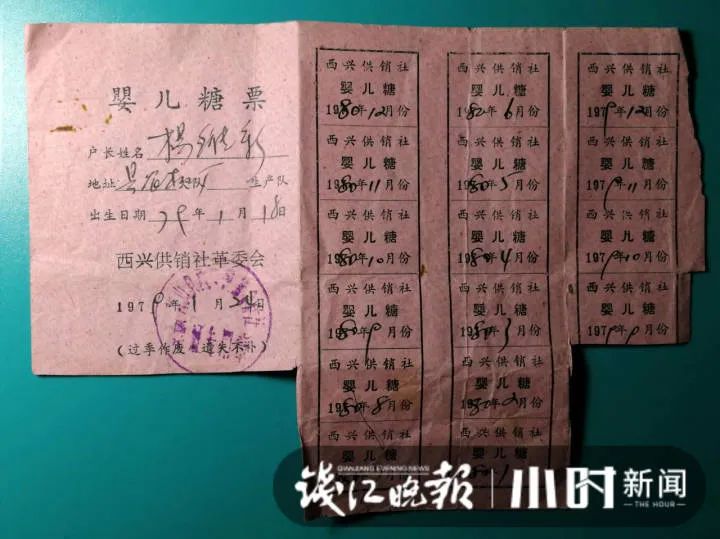 婴儿糖票
户长姓名 杨维新
地址 生产队
出生日期 79年1月18日
西兴供销社革委会
1979年1月24日
(过季作废 遗失不补)
西兴供销社
婴儿糖
1980年12月份
西兴供销社
婴儿糖
1980年11月份
西兴供销社
婴儿糖
1980年10月份
西兴供销社
婴儿糖
1980年9月份
西兴供销社
婴儿糖
1980年8月份
西兴供销社
婴儿糖
西兴供销社
婴儿糖
1980年6月份
西兴供销社
婴儿糖
1980年5月份
西兴供销社
婴儿糖
1980年4月份
西兴供销社
婴儿糖
1980年3月份
西兴供销社
婴儿糖
1980年2月份
西兴供销社
婴儿糖
西兴供销社
婴儿糖
1979年12月份
西兴供销社
婴儿糖
1979年11月份
西兴供销社
婴儿糖
1979年10月份
西兴供销社
婴儿糖
1979年9月份
QIANJIANG EVENING NEWS
钱江晚报
小时新闻
THE HOUR